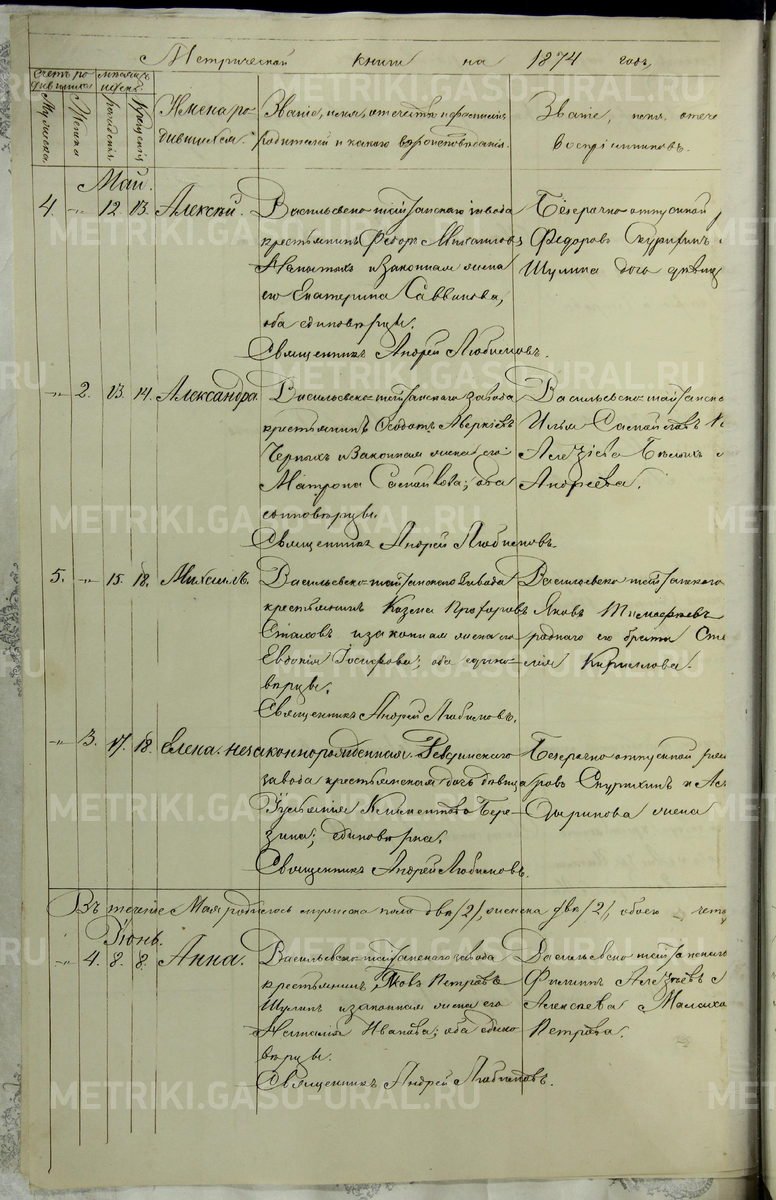 Метрической книги на 1874 годъ,
счетъ родившихся
Мужеска.
Женска
мѣсяцъ и день
рожденія.
Крещенія
Имена родившихся.
Званіе, имя, отчество и фамилія
родителей и какого вѣроисповѣданія.
Званіе, имя, отче
воспріемниковъ.
Май.
4. -"- 12. 13. Алексѣй.
Васильевско-шайтанскаго завода
крестьянинъ Ѳедоръ Михаиловъ
и законная жена
его Екатерина Саввинова,
оба единовѣрцы.
Священникъ Андрей Любимовъ.
Безсрочно-отпускной
Ѳедоровъ
Шулина дочь дѣвиц
-"- 2. 13. 14. Александра.
Васильевско-шайтанскаго завода
крестьянинъ Ѳеодотъ Аверкіевъ
Черныхъ и законная жена его
Матрона; оба
единовѣрцы.
Священникъ Андрей Любимовъ.
Васильевско-шайтанско
Илья
Бѣлыхъ
Андреева.
5. -"- 15. 18. Михаилъ.
Васильевско-шайтанскаго завода
крестьянинъ Козма Прохоровъ
и законная жена его
Евдокія Іосифова; оба едино-
вѣрцы.
Священникъ Андрей Любимовъ.
Васильевско шайтанскаго
Яковъ
роднаго его брата Сте
Кириллова.
-"- 3. 17. 18. Елена. незаконнорожденная.
Ревдинскаго
завода крестьянская дочь дѣвица
Климентова Бере-
зина; единовѣрка.
Священникъ Андрей Любимовъ.
Безсрочно отпускной
ровъ Скурихинъ и
жена
Въ теченіе Мая родилось мужска пола два /2/, женска два /2/, обоего четы
Іюнь.
-"- 4. 8. 8. Анна.
Васильевско-шайтанскаго завода
крестьянинъ Яковъ Петровъ
Шулинъ и законная жена его
Наталія Иванова; оба едино
вѣрцы.
Священникъ Андрей Любимовъ.
Васильевско шайтанскаго
Филиппъ
Алексѣева Малахо
Петрова.
METRIKI.GASO-URAL.RU